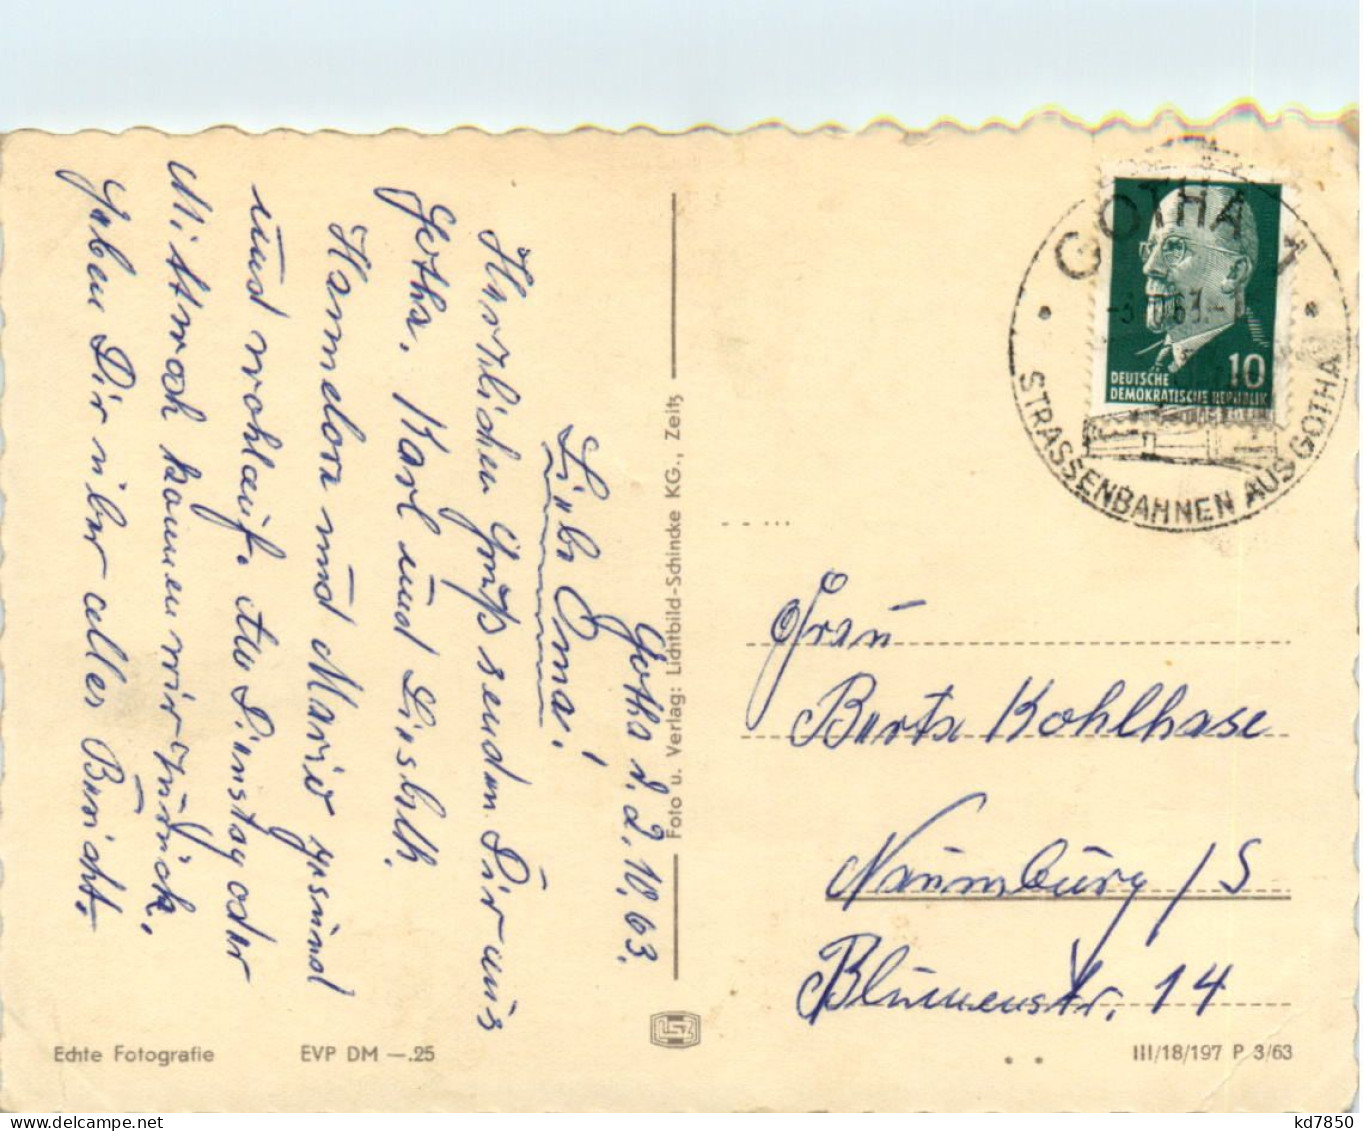 Gotha d. 2.10.63.
Liebe Oma!
Herzlichen Gruß senden Dir aus
Gotha. Karl und Liesbeth.
Hannelore und Mario gesund
und wohlauf. Am Dienstag oder
Mittwoch kommen wir zurück.
geben Dir über alles Bericht.
Foto u. Verlag: Lichtbild-Schincke KG., Zeitz
Echte Fotografie
EVP DM —.25
GOTHA 1
-3 63.-1
STRASSENBAHNEN AUS GOTHA
10
DEUTSCHE
DEMOKRATISCHE REPUBLIK
Frau
Berta Kohlhase
Naumburg/S
Blumenstr. 14
III/18/197 P 3/63
kd7850